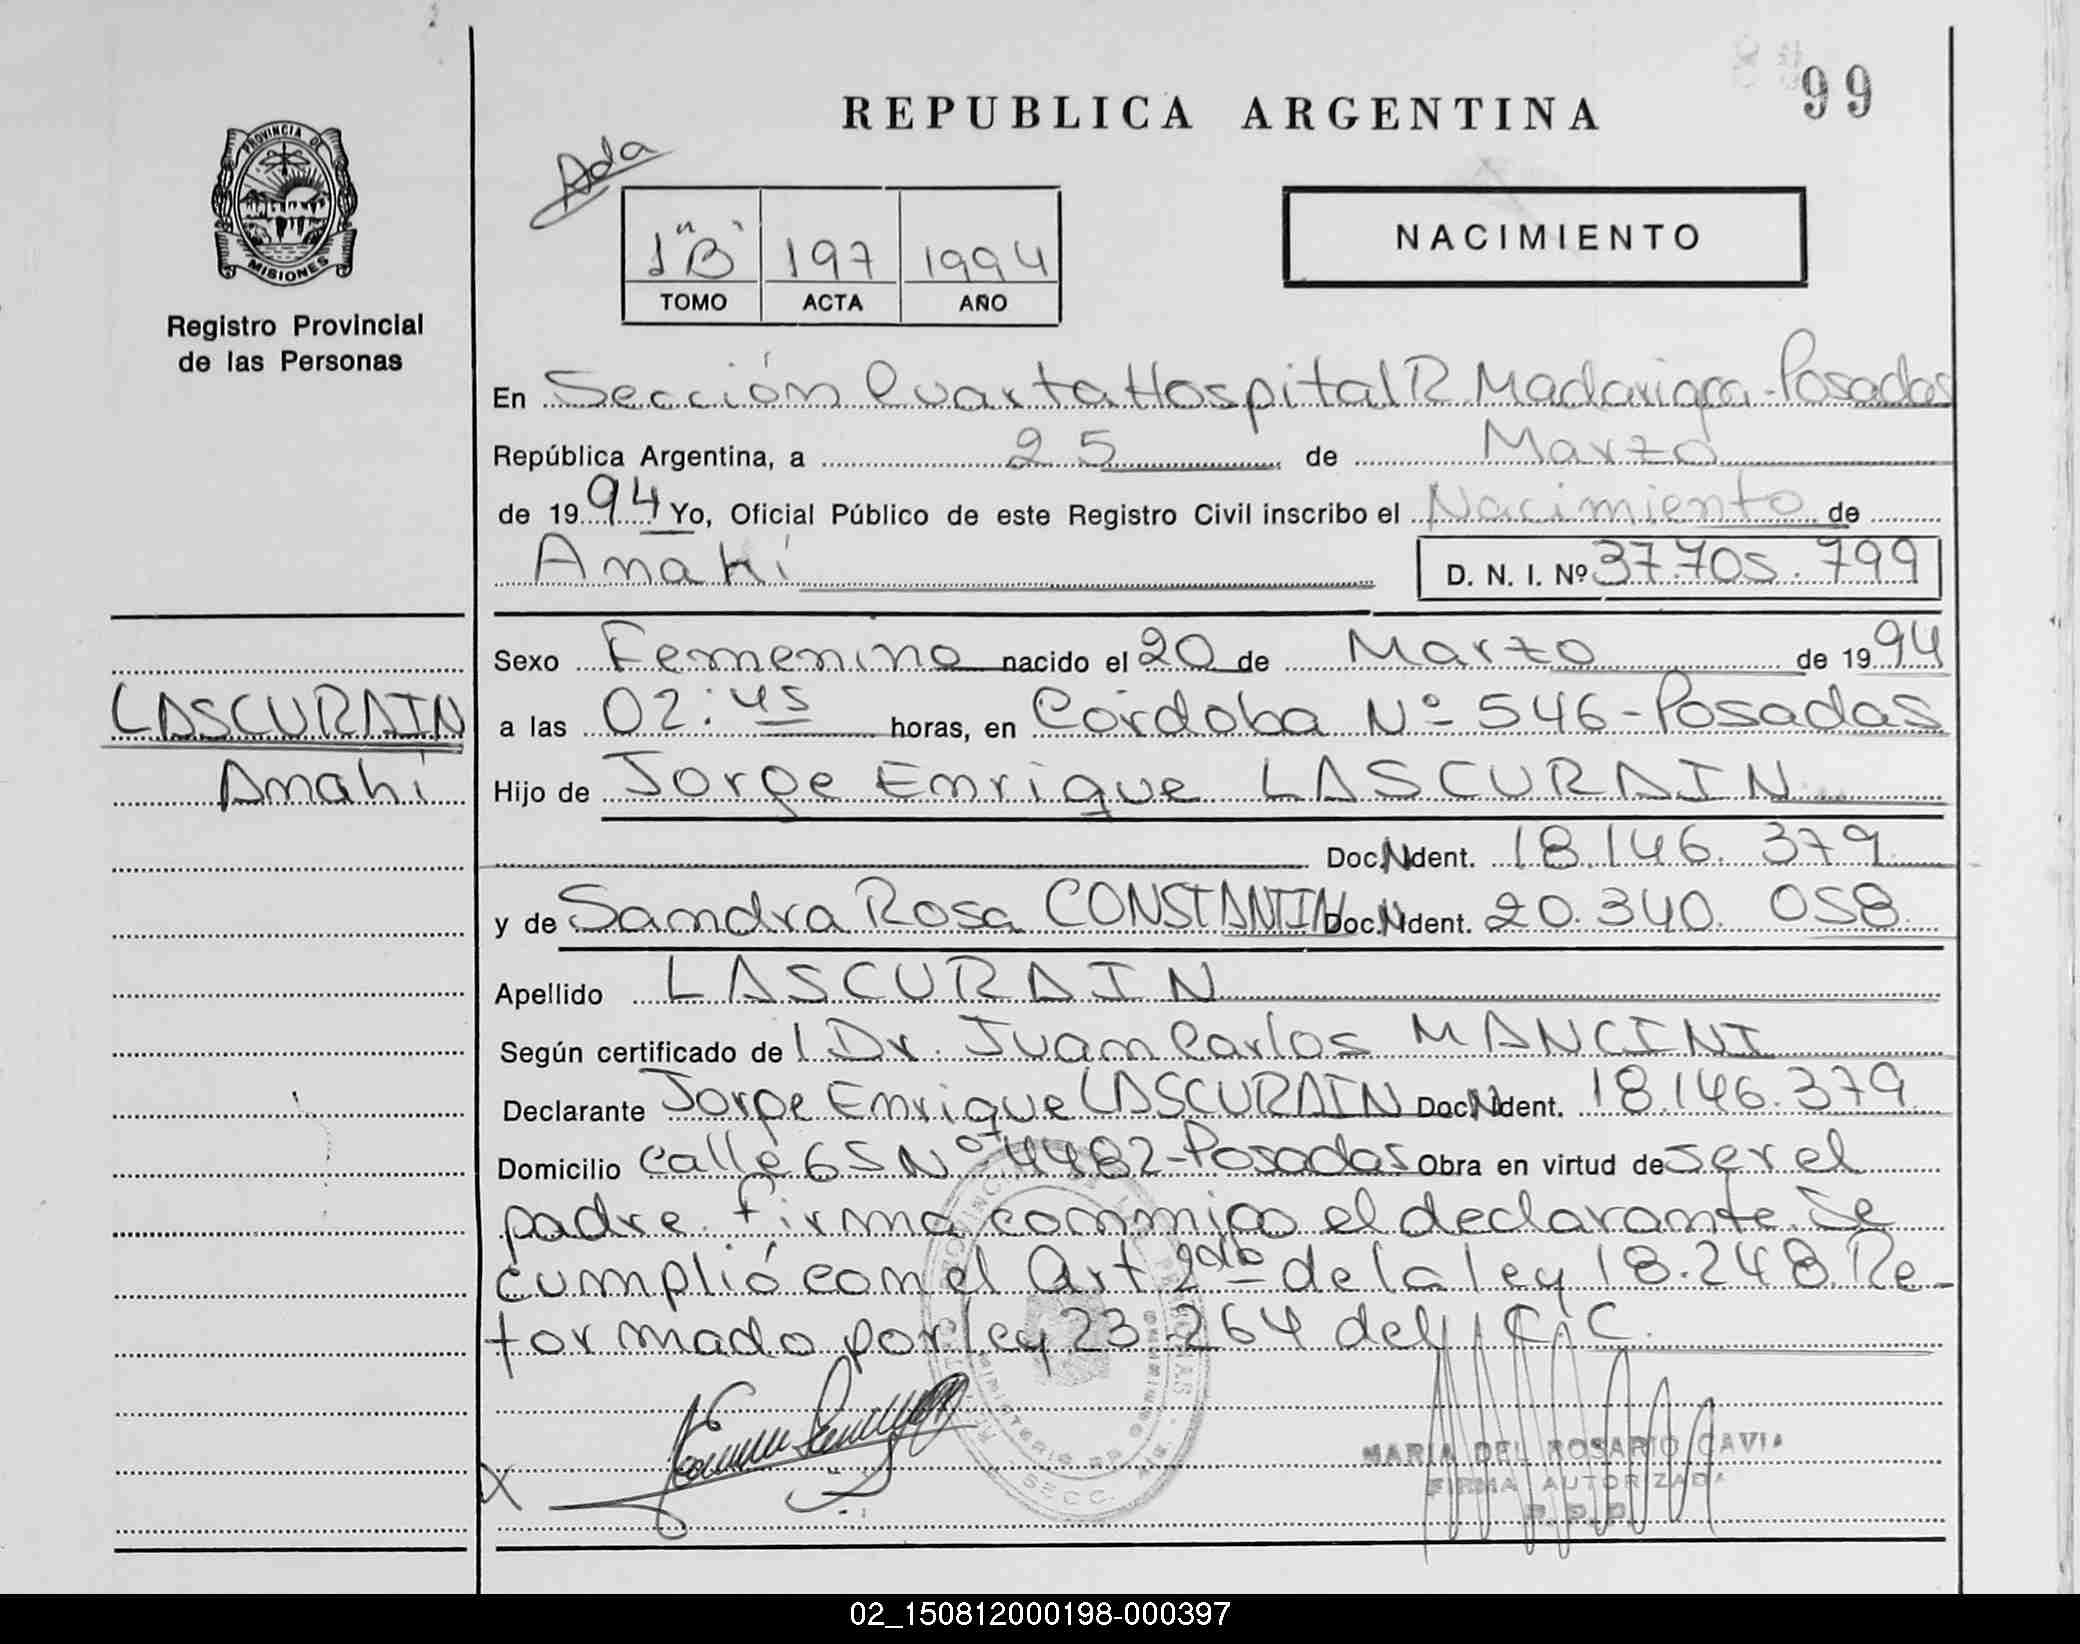 99
REPUBLICA ARGENTINA
Ada
PROVINCIA DE
MISIONES
Registro Provincial
de las Personas
1 "B" 197 1994
TOMO ACTA AÑO
NACIMIENTO
En Sección Cuarta Hospital R Madariaga - Posadas
República Argentina, a 25 de Marzo
de 1994 Yo, Oficial Público de este Registro Civil inscribo el Nacimiento de
Anahí
D. N. I. Nº 37.705.799
Sexo Femenino nacido el 20 de Marzo de 1994
LASCURAIN
a las 02:45 horas, en Córdoba Nº 546 - Posadas
Anahí
Hijo de Jorge Enrique LASCURAIN
Doc. N Ident. 18.146.379
y de Sandra Rosa CONSTANTIN Doc. N Ident. 20.340.058
Apellido LASCURAIN
Según certificado de l Dr. Juan Carlos MANCINI
Declarante Jorge Enrique LASCURAIN Doc N Ident. 18.146.379
Domicilio Calle 65 Nº 4482 - Posadas Obra en virtud de ser el
padre. firma conmigo el declarante. Se
cumplió con el Art 2do de la ley 18.248. Re-
formado por ley 23.264 del C.C.
X
MARIA DEL ROSARIO CAVIA
FIRMA AUTORIZADA
SECC.
02_150812000198-000397